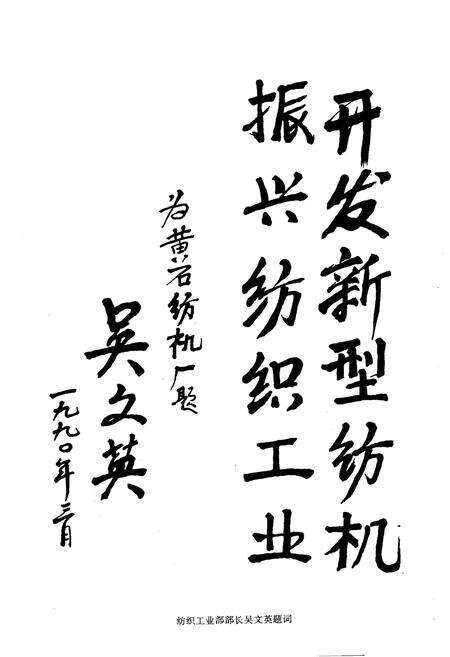 开发新型纺机
振兴纺织工业
为黄石纺机厂题
吴文英
一九九〇年三月
纺织工业部部长吴文英题词